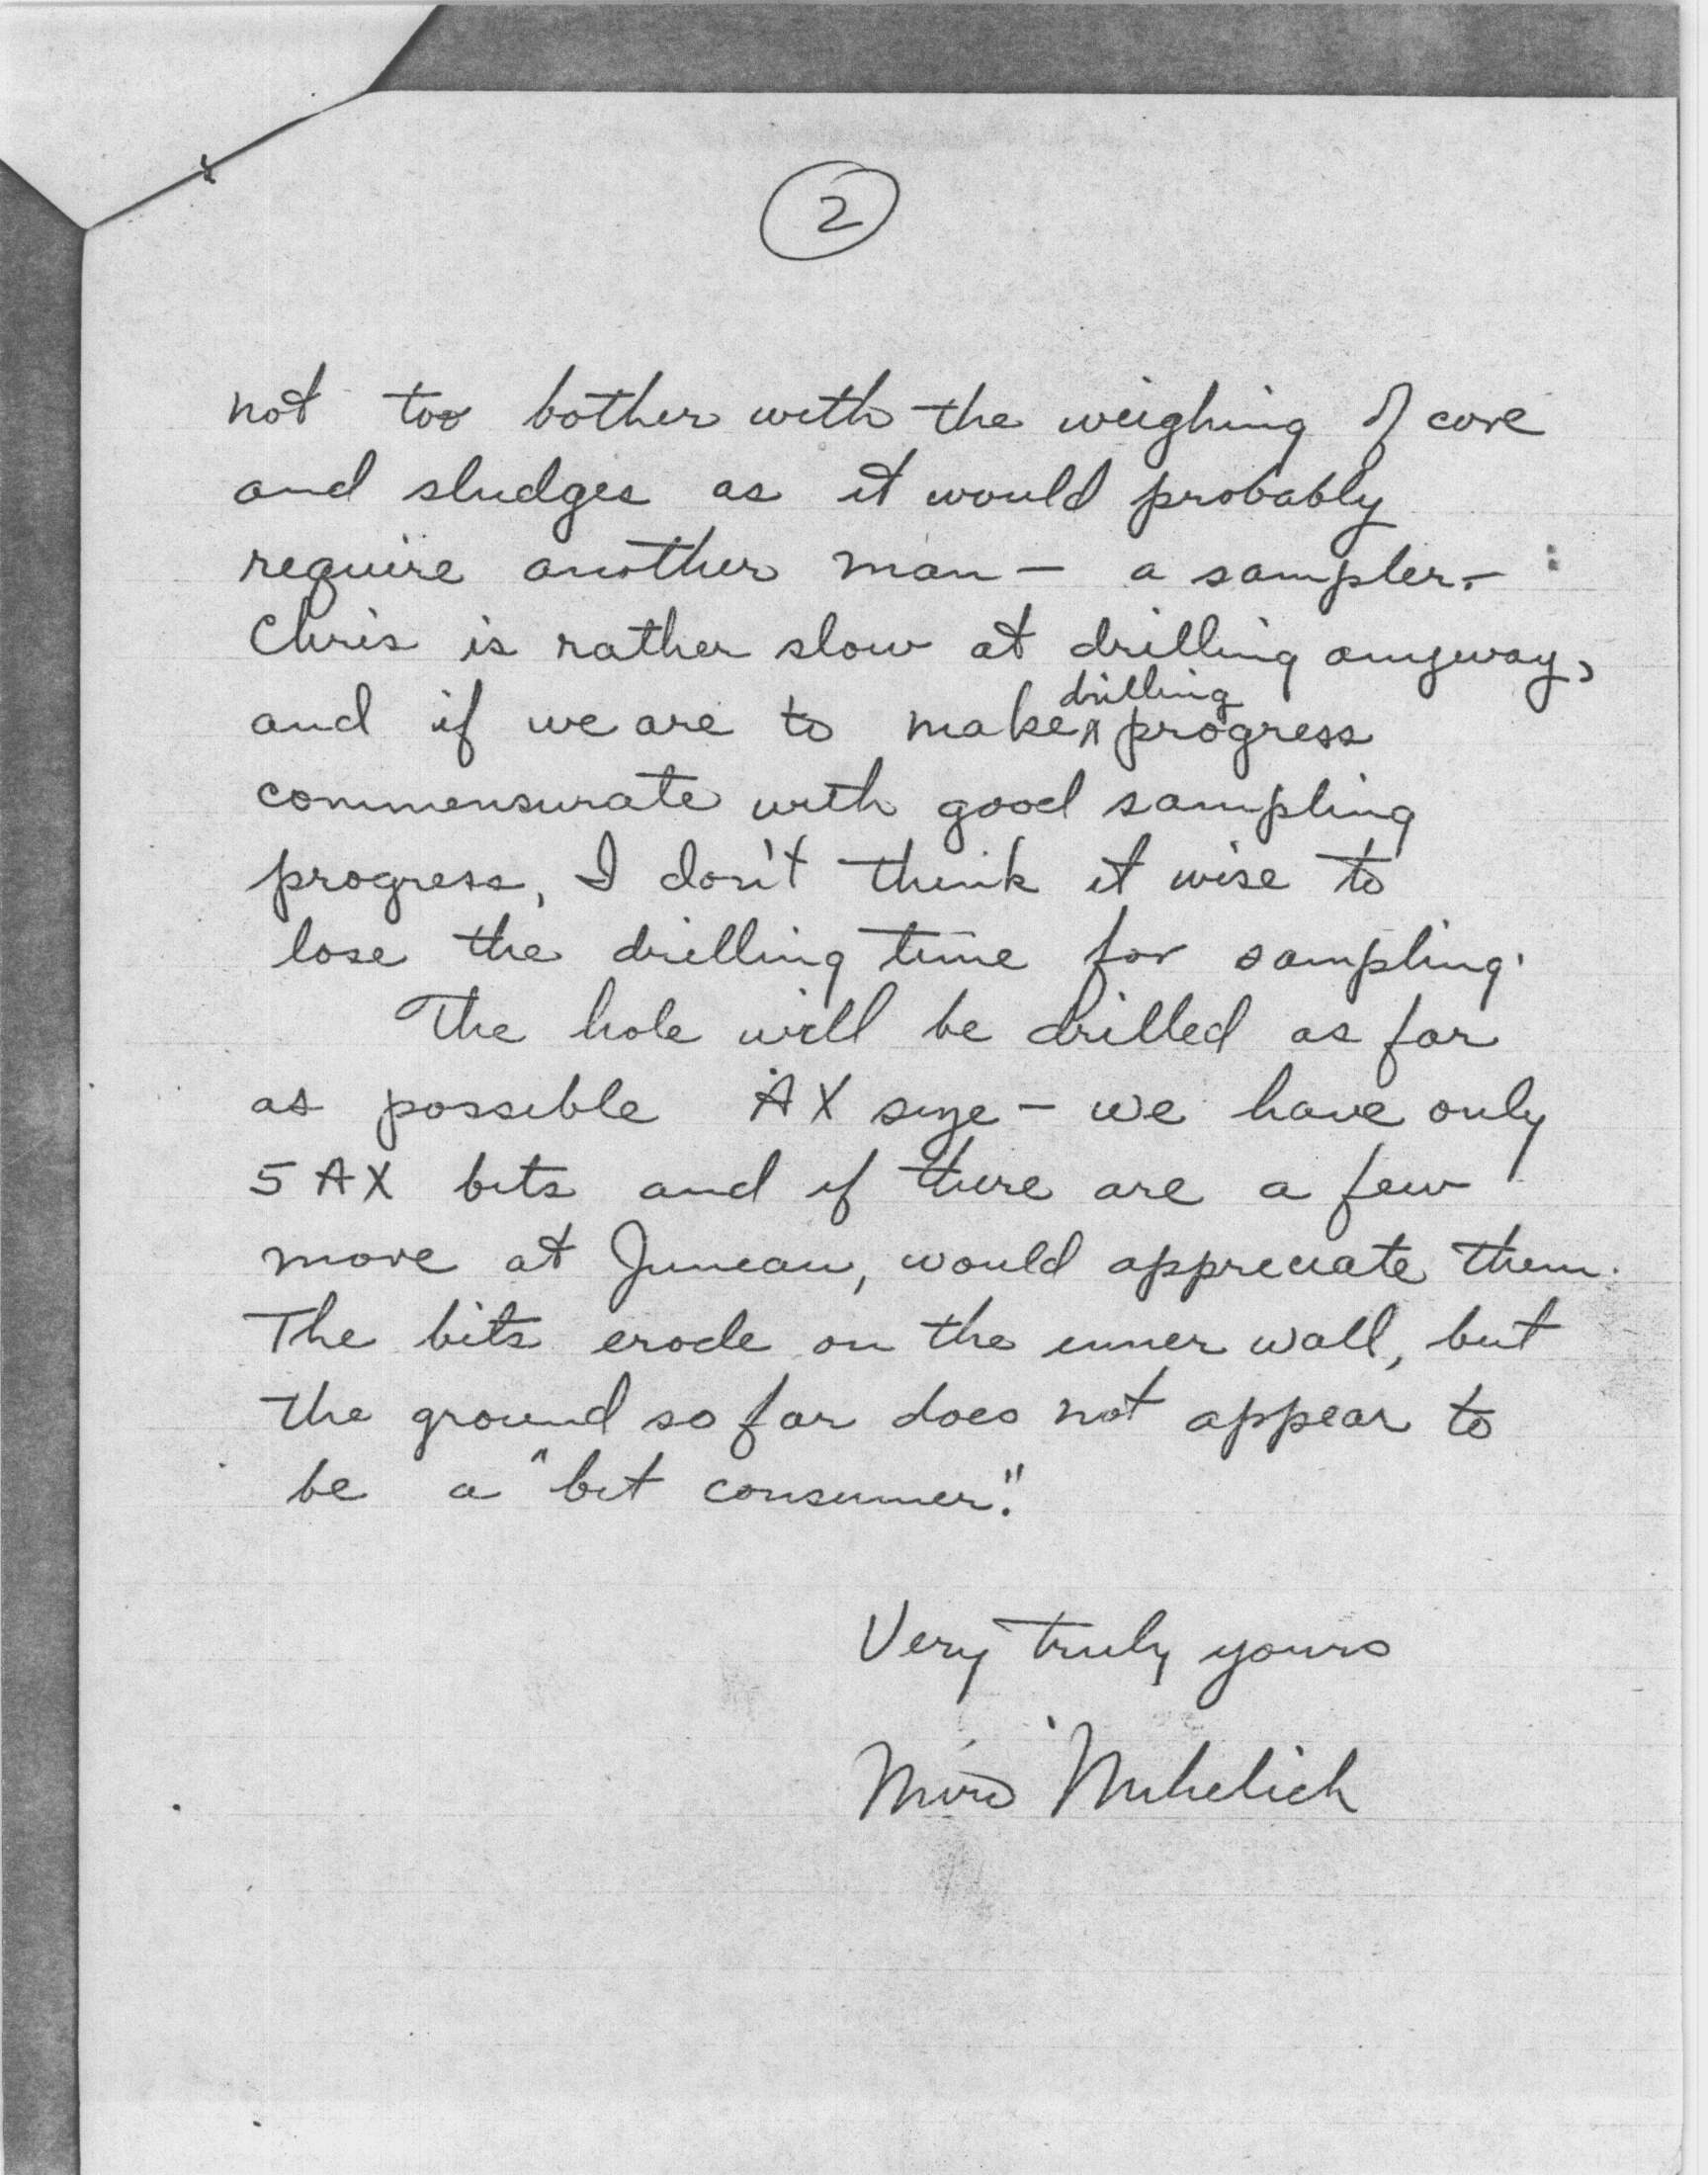 2
not too bother with the weighing of core
and sludges as it would probably
require another man — a sampler. —
Chris is rather slow at drilling anyway,
and if we are to make drilling progress
commensurate with good sampling
progress, I don't think it wise to
lose the drilling time for sampling.
The hole will be drilled as far
as possible AX size — we have only
5 AX bits and if there are a few
more at Juneau, would appreciate them.
The bits erode on the inner wall, but
the ground so far does not appear to
be a "bit consumer."
Very truly yours
Miro Mihelich